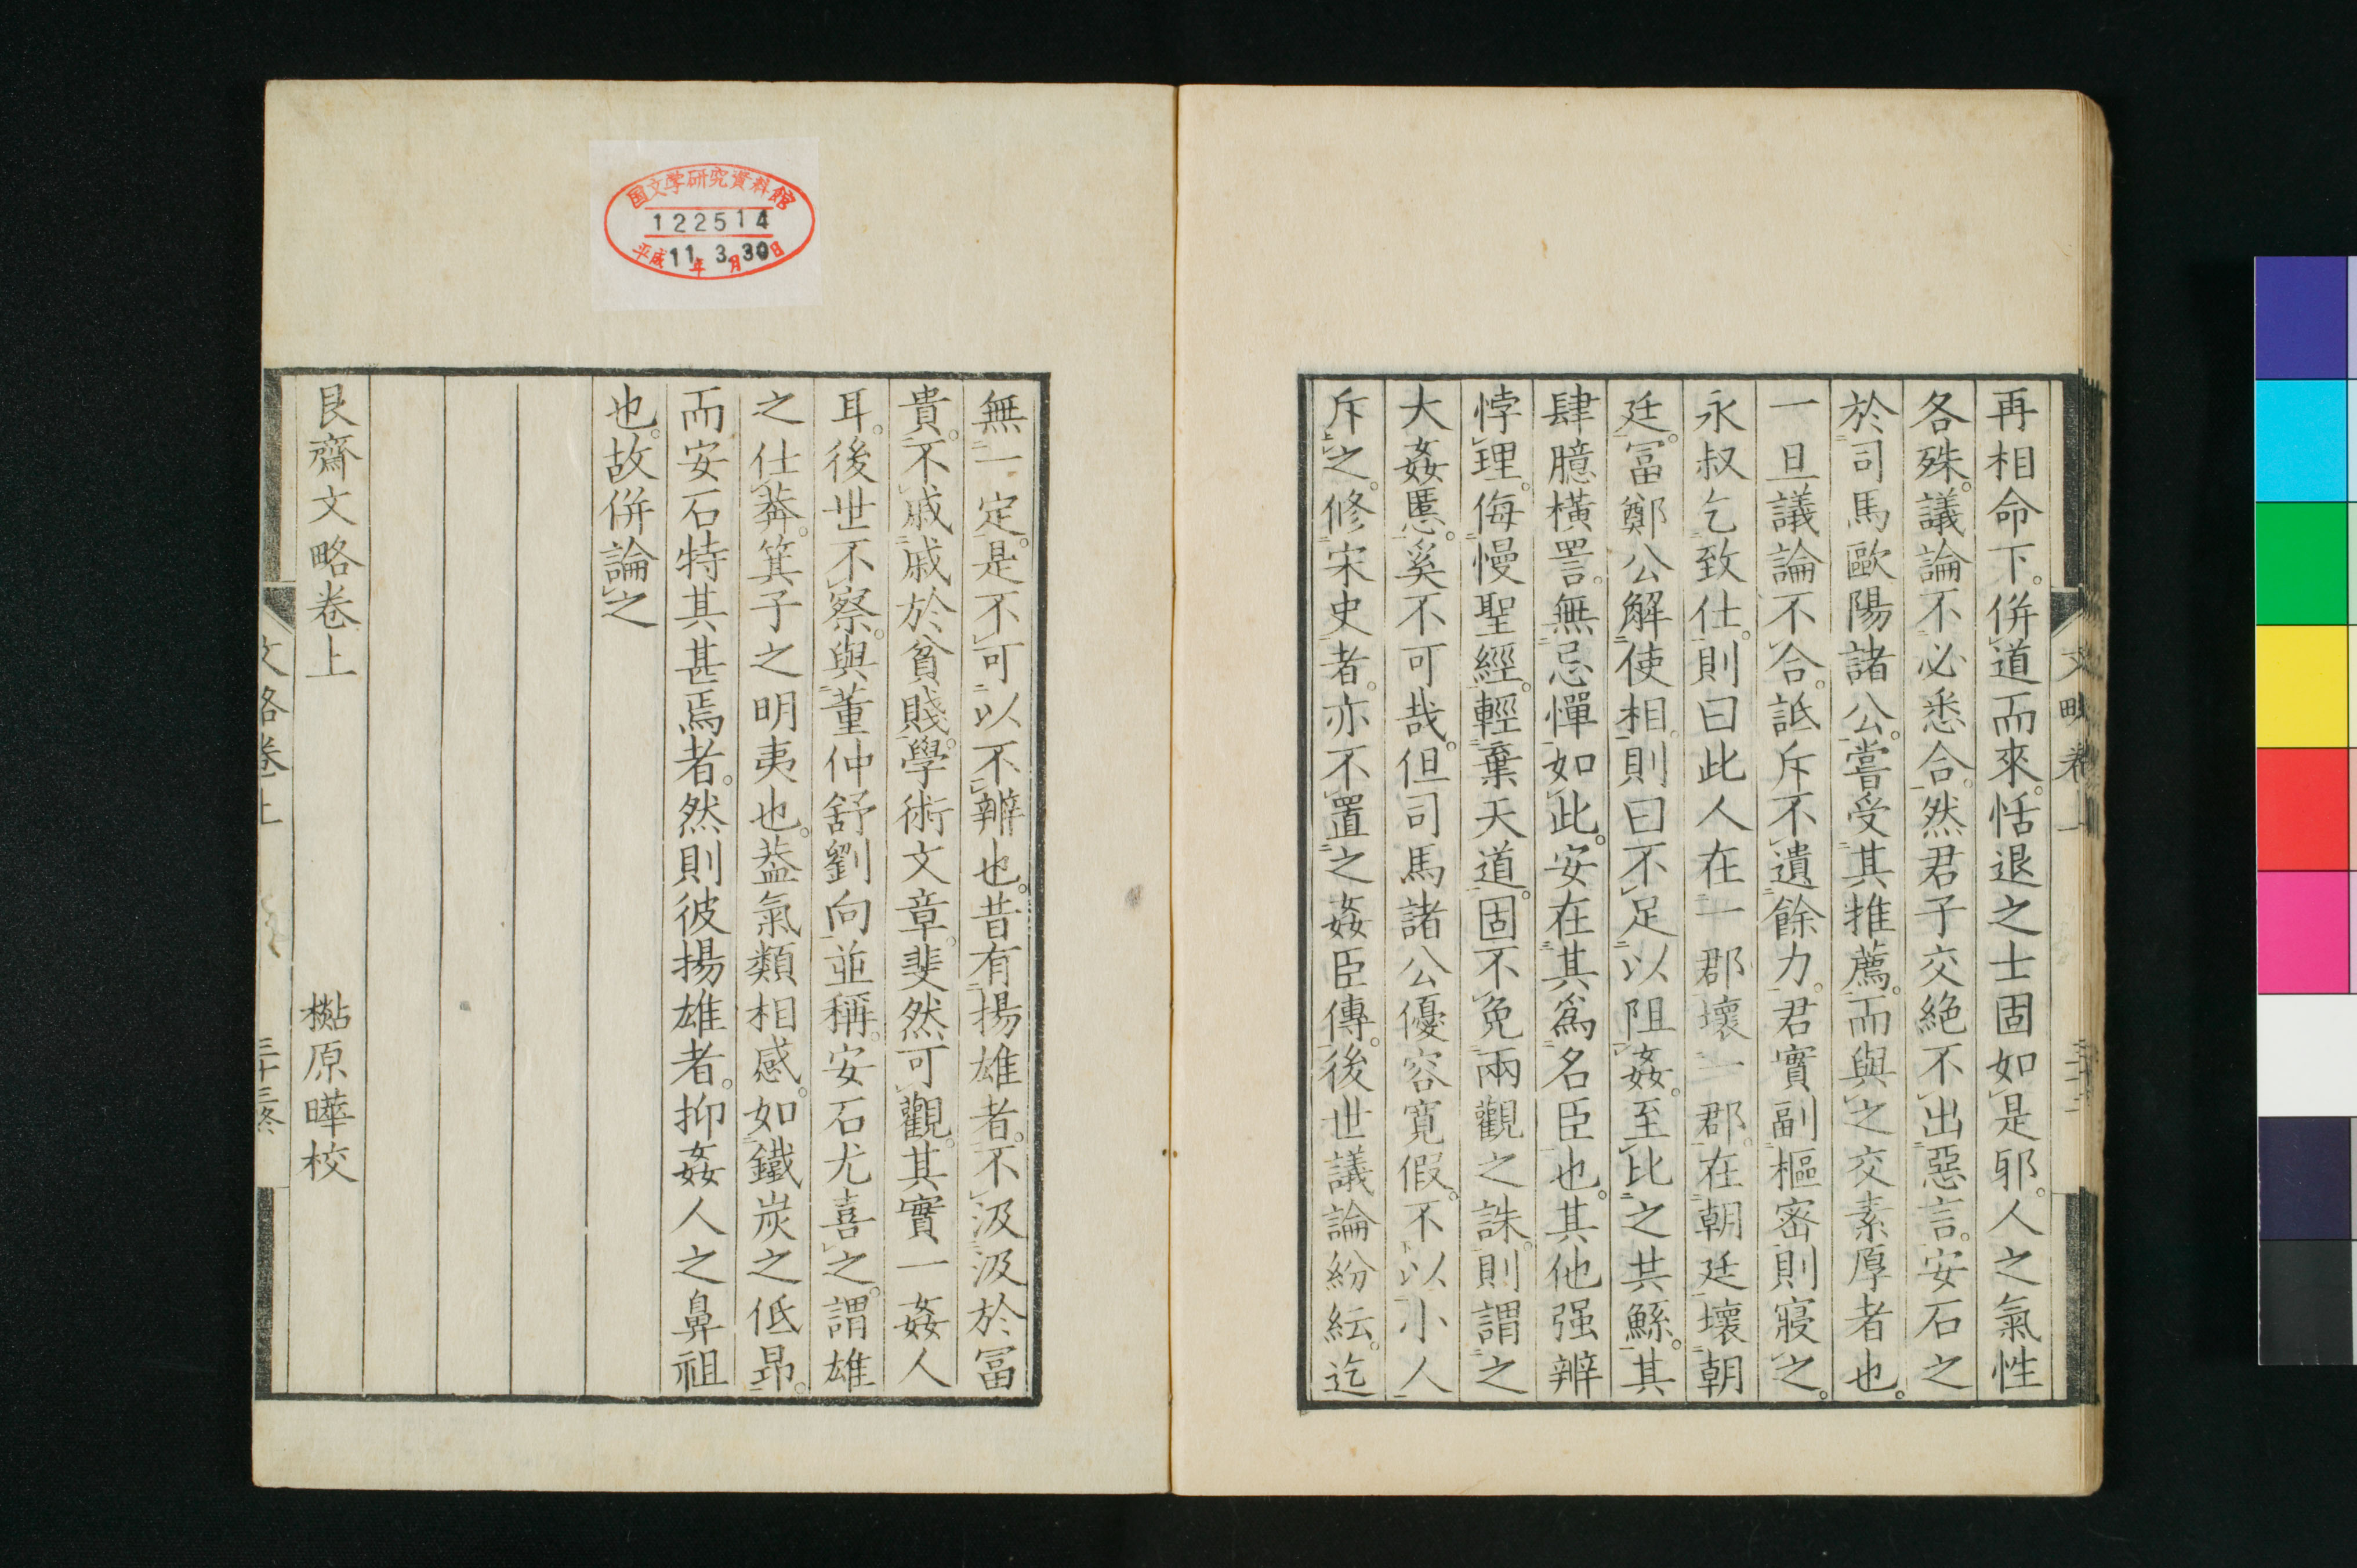 再相命下。併道而來。恬退之士固如是邪。人之氣性
各殊。議論不必悉合。然君子交絶不出惡言。安石之
於司馬歐陽諸公。嘗受其推薦。而與之交素厚者也。
一旦議論不合。詆斥不遺餘力。君實副樞密則寢之。
永叔乞致仕。則曰此人在一郡壞一郡。在朝廷壞朝
廷。冨鄭公解使相。則曰不足以阻姦。至比之共鯀。其
肆臆橫詈。無忌憚如此。安在其爲名臣也。其他强辨
悖理。侮慢聖經。輕棄天道。固不免兩觀之誅。則謂之
大姦慝。奚不可哉。但司馬諸公優容寛假。不以小人
斥之。修宋史者。亦不置之姦臣傳。後世議論紛紜。迄
無一定。是不可以不辨也。昔有揚雄者。不汲汲於冨
貴。不戚戚於貧賤。學術文章。斐然可觀。其實一姦人
耳。後世不察。與董仲舒劉向並稱。安石尤喜之。謂雄
之仕莽。箕子之明夷也。葢氣類相感。如鐵炭之低昻。
而安石特其甚焉者。然則彼揚雄者。抑姦人之鼻祖
也。故併論之
艮齋文略卷上
原曄校
文略卷上
三十三終
国文学研究資料館
122514
平成11年3月30日